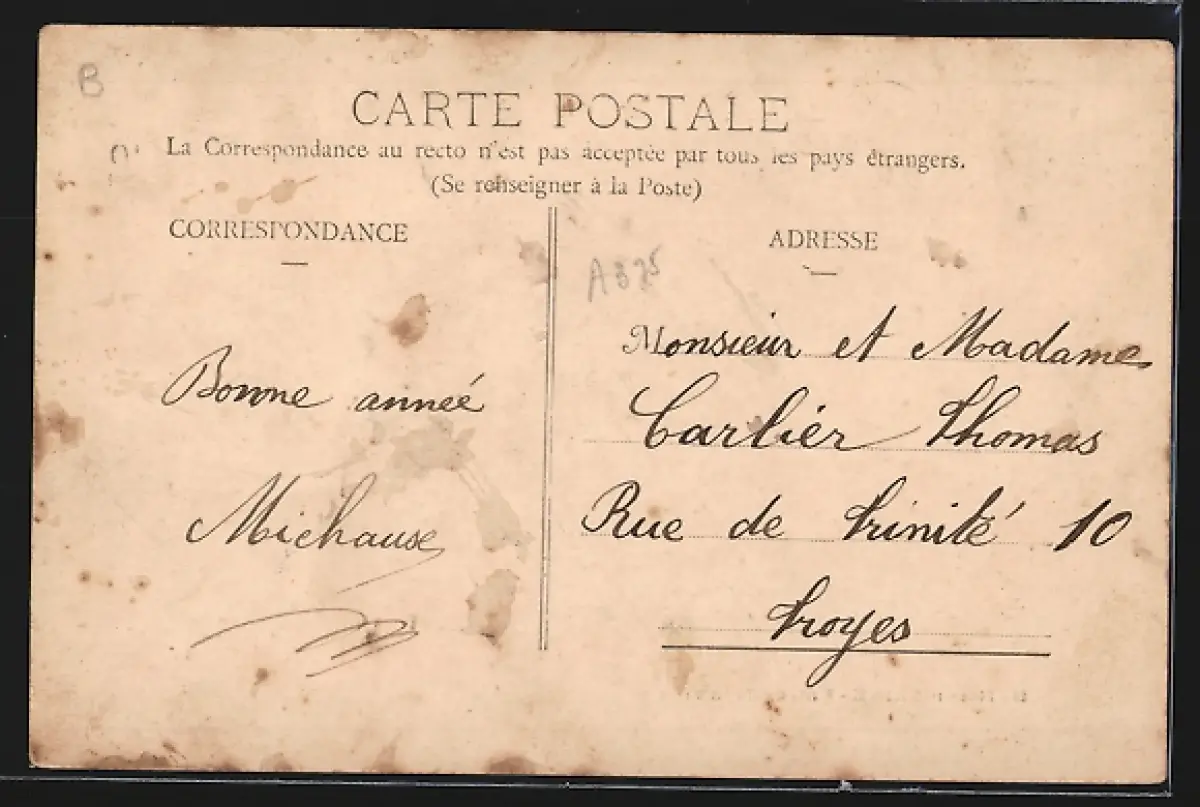 B
CARTE POSTALE
La Correspondance au recto n'est pas acceptée par tous les pays étrangers.
(Se renseigner à la Poste)
CORRESPONDANCE
Bonne année
Michause
ADRESSE
A375
Monsieur et Madame
Carlier Thomas
Rue de trinité 10
troyes